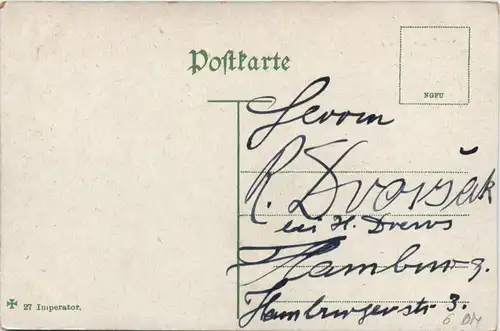 Postkarte
NGFU
Herrn
R. Dvořak
bei H. Drews
Hamburg.
Hamburgerstr. 3.
6 DM
✠ 27 Imperator.